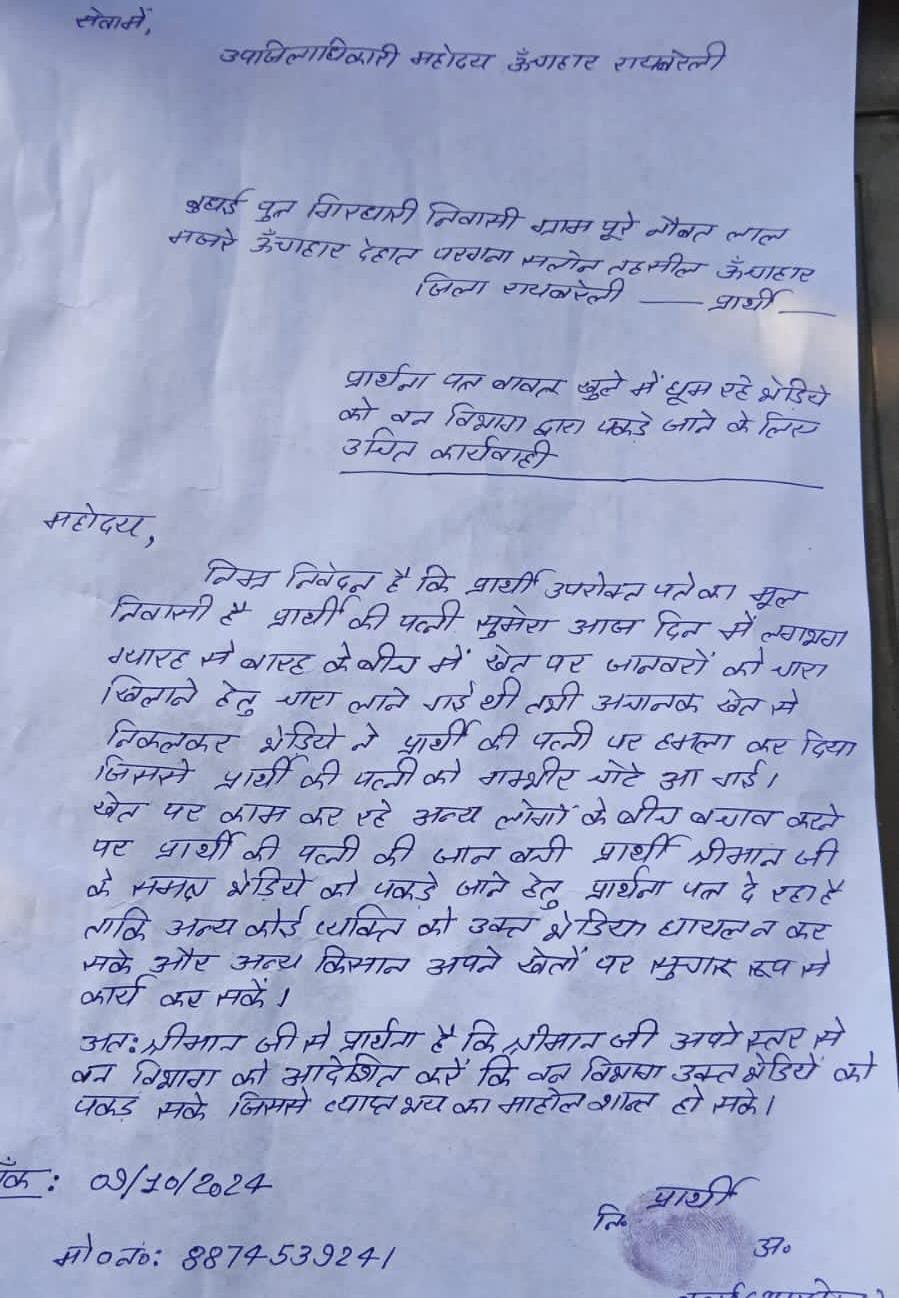 सेवामें,
उपजिलाधिकारी महोदय ऊँचाहार रायबरेली
बुधई पुत्र गिरधारी निवासी ग्राम पूरे नौबत लाल
मजरे ऊँचाहार देहात परगना सलोन तहसील ऊँचाहार
जिला रायबरेली —— प्रार्थी —
प्रार्थना पत्र बावत खुले में घूम रहे भेडिये
को वन विभाग द्वारा पकड़े जाने के लिए
उचित कार्यवाही
महोदय,
निम्न निवेदन है कि प्रार्थी उपरोक्त पते का मूल
निवासी है प्रार्थी की पत्नी सुमेरा आज दिन में लगभग
ग्यारह से बारह के बीच में खेत पर जानवरों को चारा
खिलाने हेतु चारा लाने गई थी तभी अचानक खेत से
निकलकर भेड़िये ने प्रार्थी की पत्नी पर हमला कर दिया
जिससे प्रार्थी की पत्नी को गम्भीर चोटे आ गई।
खेत पर काम कर रहे अन्य लोगों के बीच बचाव करने
पर प्रार्थी की पत्नी की जान बची प्रार्थी श्रीमान जी
के समक्ष भेड़िये को पकड़े जाने हेतु प्रार्थना पत्र दे रहा है
ताकि अन्य कोई व्यक्ति को उक्त भेडिया घायल न कर
सके और अन्य किसान अपने खेतों पर सुचारू रूप से
कार्य कर सकें।
अतः श्रीमान जी से प्रार्थना है कि श्रीमान जी अपने स्तर से
वन विभाग को आदेशित करें कि वन विभाग उक्त भेडियें को
पकड़ सके जिससे व्याप्त भय का माहोल शान्त हो सके।
ाँक: 09/10/2024
प्रार्थी
नि०
अ०
मो०नं०: 8874539241